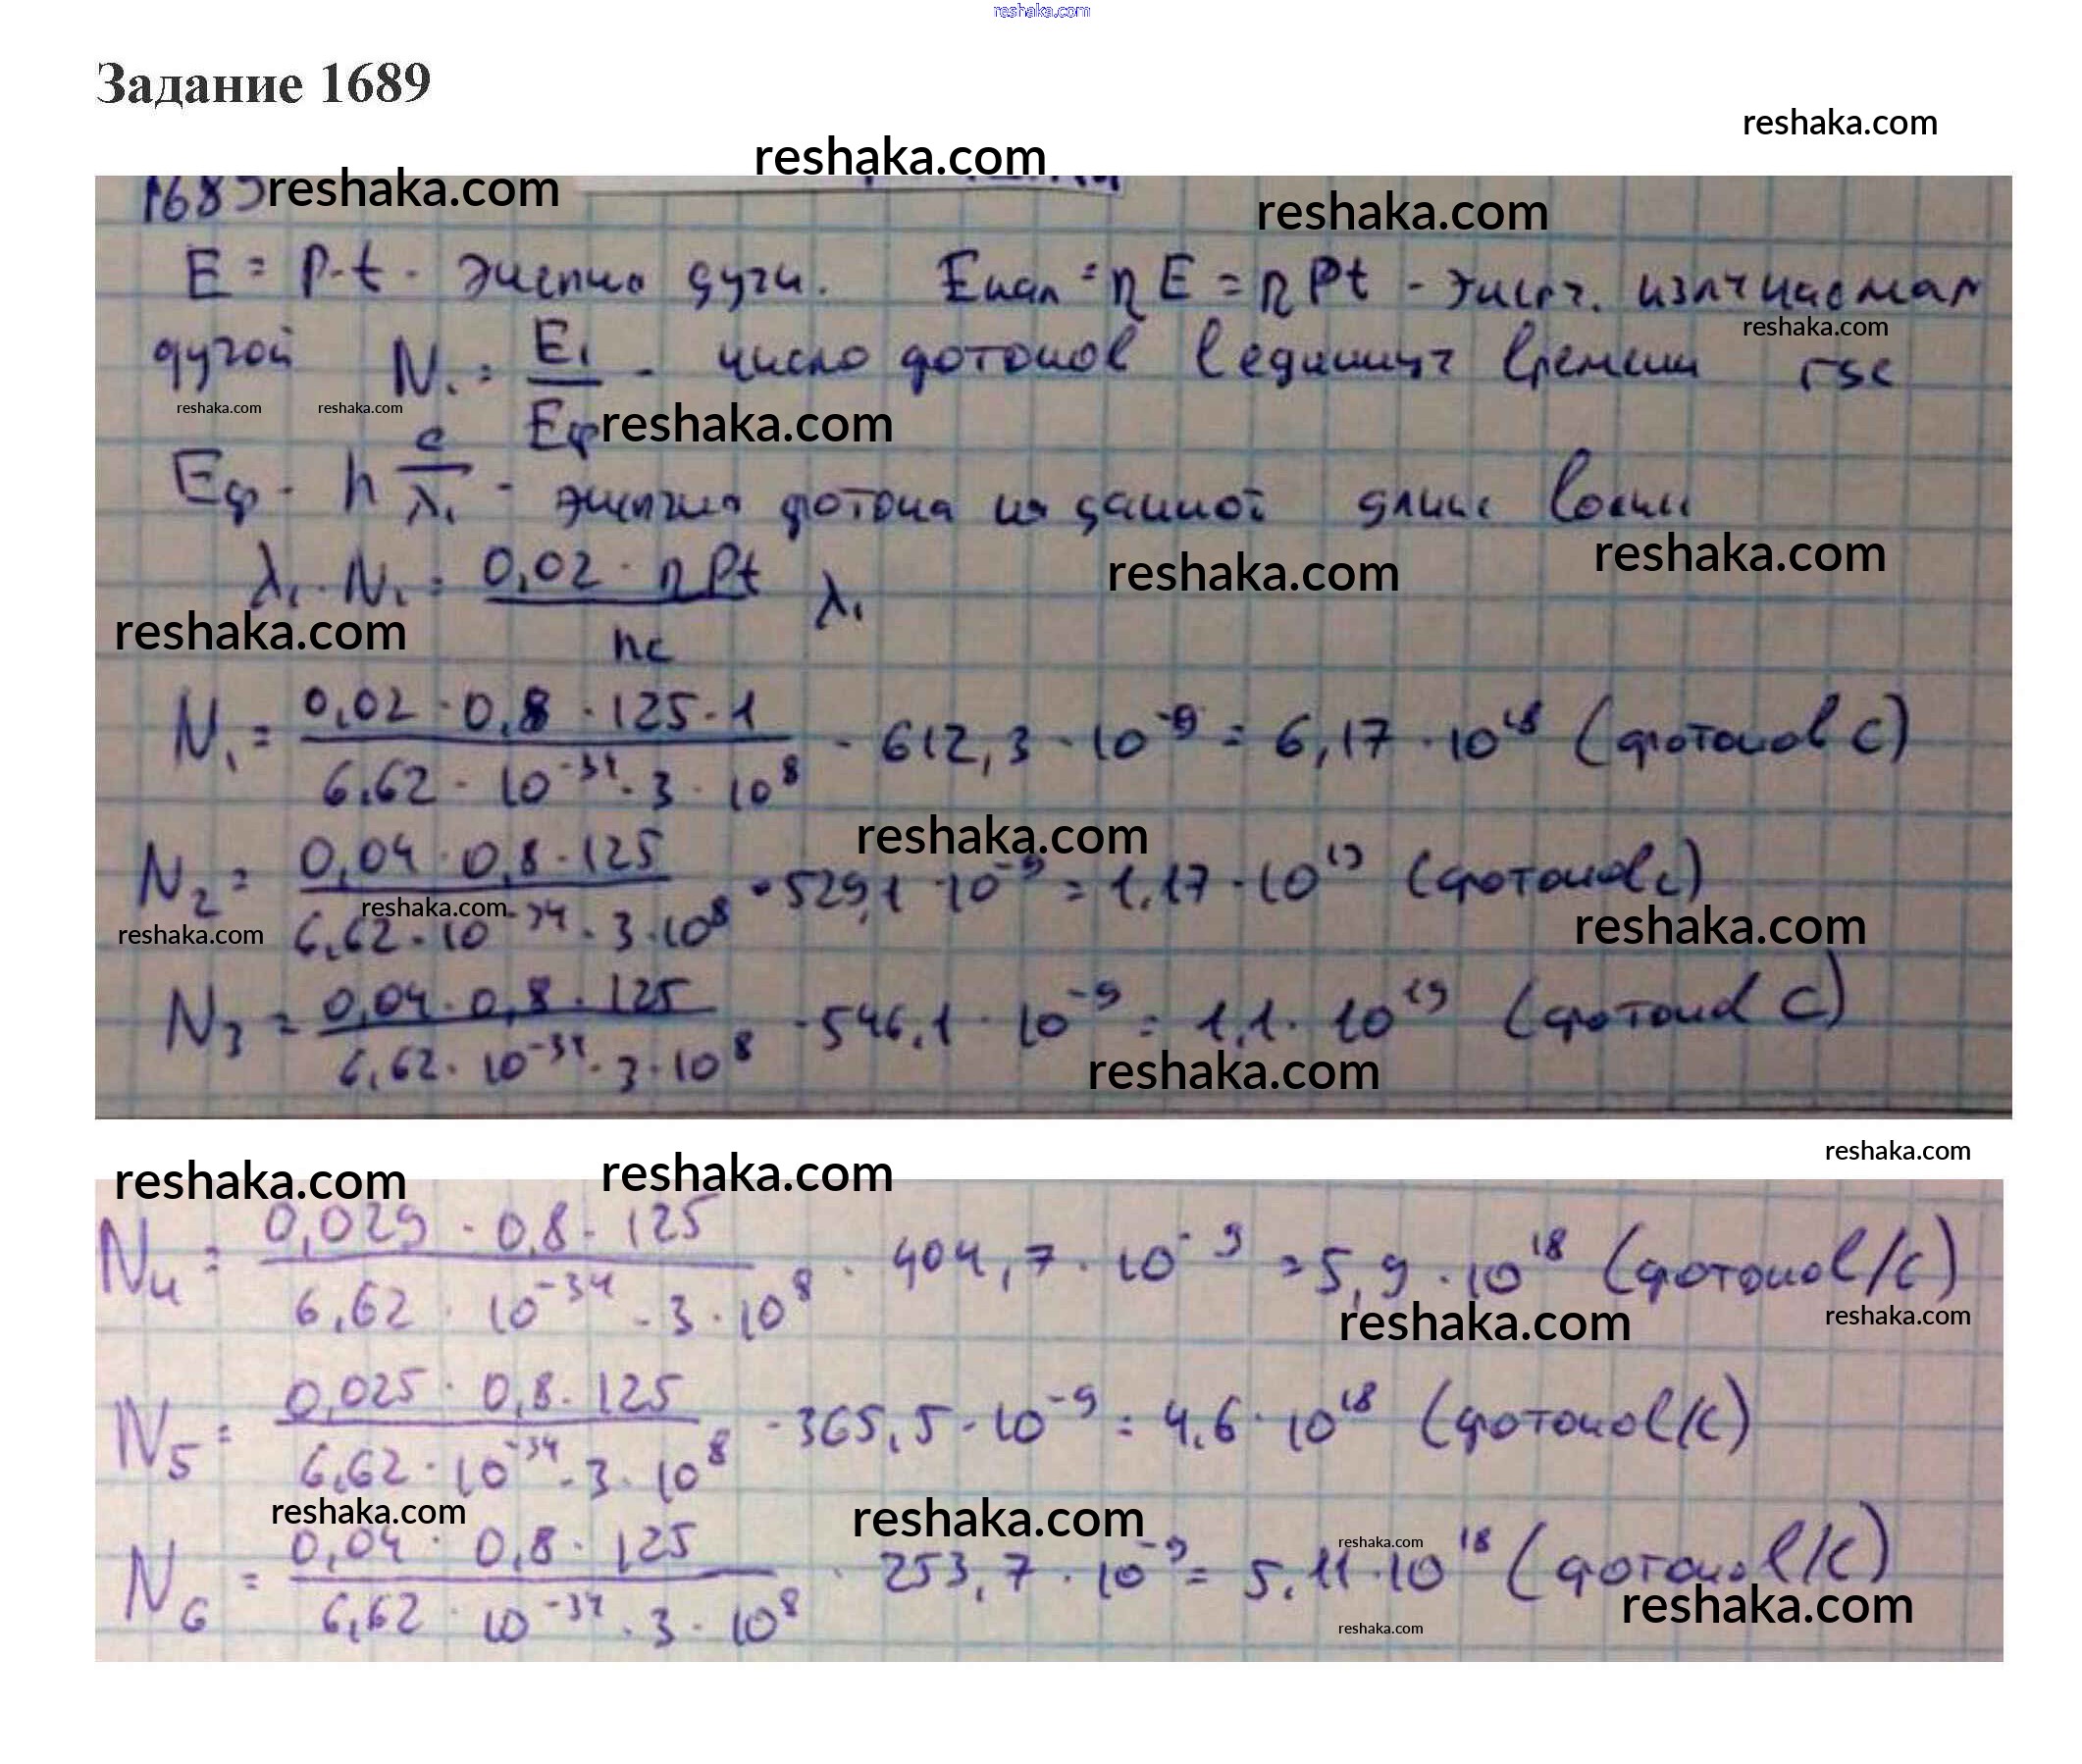 reshaka.com
Задание 1689
reshaka.com
reshaka.com
1689 reshaka.com
reshaka.com
E = P·t - энергия дуги. Eизл = ηE = ηPt - энерг. излучаемая
reshaka.com
дугой N₁ = E₁/Eф - число фотонов в единицу времени где
reshaka.com reshaka.com reshaka.com
Eф = h c/λ₁ - энергия фотона на данной длине волны
reshaka.com reshaka.com
λ₁. N₁ = 0,02 · ηPt / hc λ₁
reshaka.com
N₁ = 0,02 · 0,8 · 125 · 1 / 6,62 · 10⁻³⁴ · 3 · 10⁸ · 612,3 · 10⁻⁹ = 6,17 · 10¹⁸ (фотонов с)
reshaka.com
N₂ = 0,04 · 0,8 · 125 / 6,62 · 10⁻³⁴ · 3 · 10⁸ · 529,1 · 10⁻⁹ = 1,17 · 10¹⁹ (фотонов с)
reshaka.com reshaka.com reshaka.com
N₃ = 0,04 · 0,8 · 125 / 6,62 · 10⁻³⁴ · 3 · 10⁸ · 546,1 · 10⁻⁹ = 1,1 · 10¹⁹ (фотонов с)
reshaka.com
reshaka.com
reshaka.com reshaka.com
N₄ = 0,029 · 0,8 · 125 / 6,62 · 10⁻³⁴ · 3 · 10⁸ · 404,7 · 10⁻⁹ = 5,9 · 10¹⁸ (фотонов/с)
reshaka.com reshaka.com
N₅ = 0,025 · 0,8 · 125 / 6,62 · 10⁻³⁴ · 3 · 10⁸ · 365,5 · 10⁻⁹ = 4,6 · 10¹⁸ (фотонов/с)
reshaka.com reshaka.com reshaka.com
N₆ = 0,04 · 0,8 · 125 / 6,62 · 10⁻³⁴ · 3 · 10⁸ · 253,7 · 10⁻⁹ = 5,11 · 10¹⁸ (фотонов/с)
reshaka.com
reshaka.com